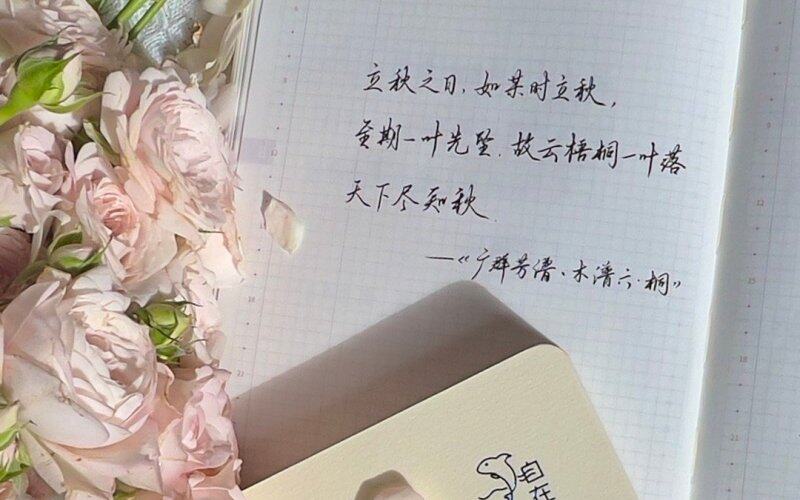 立秋之日，如某时立秋，
至期一叶先坠，故云梧桐一叶落
天下尽知秋。
—《广群芳谱·木谱六·桐》
自在